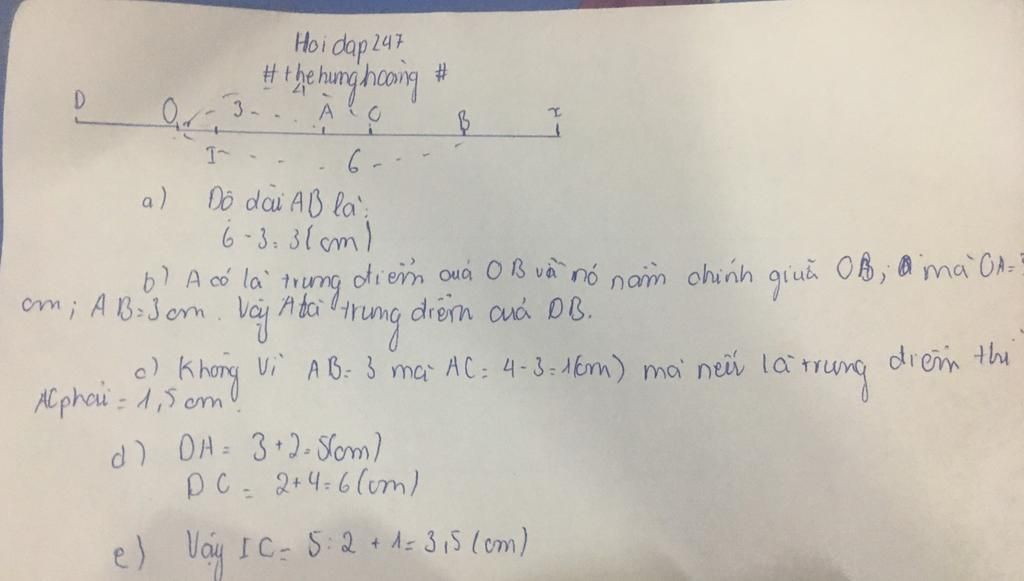 Hoi dap 247
# thehunghoang #
D O 3 4 A C B x
I 6
a) Độ dài AB là:
6 - 3 = 3 (cm)
b) A có là trung điểm của OB vì nó nằm chính giữa OB; mà OA = 3
cm; AB = 3 cm. Vậy A là trung điểm của OB.
c) Không vì AB = 3 mà AC = 4 - 3 = 1 (cm) mà nếu là trung điểm thì
AC phải = 1,5 cm.
d) DA = 3 + 2 = 5 (cm)
DC = 2 + 4 = 6 (cm)
e) Vậy IC = 5 : 2 + 1 = 3,5 (cm)